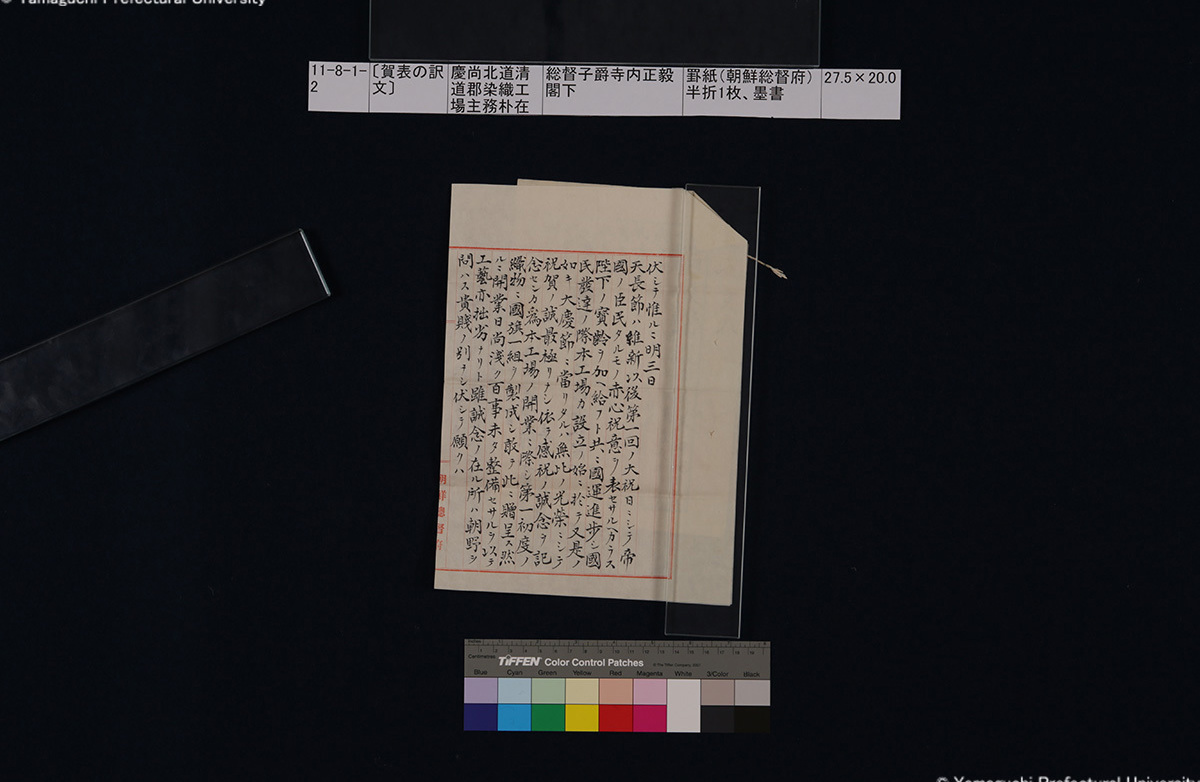 © Yamaguchi Prefectural University
11-8-1-2
〔賀表の訳文〕
慶尚北道清道郡染織工場主務朴在
総督子爵寺内正毅閣下
罫紙(朝鮮総督府)半折1枚、墨書
27.5×20.0
伏シテ惟ルニ明三日
天長節ハ維新以後第一回ノ大祝日ニシテ帝
國ノ臣民タルモノ赤心祝意ヲ表セサル可カラス
陛下ノ寳齡ヲ加ヘ給フト共ニ國運進歩シ國
民發達ノ際本工場カ設立ノ始ニ於テ又是ノ
如キ大慶節ニ當リタルハ無比ノ光榮ニシテ
祝賀ノ誠最極リナシ依テ感祝ノ誠念ヲ記
念センカ爲本工場ノ開業ニ際シ第一初度ノ
織物ニ國旗一組ヲ製成シ敢テ此ニ贈呈ス然
ルニ開業日尚淺ク百事未タ整備セサルヲ以テ
工藝亦拙劣ナリト雖誠念ノ在ル所ハ朝野ヲ
問ハス貴賤ノ別ナシ伏シテ願クハ
朝鮮總督府
Centimetres
TIFFEN Color Control Patches
© The Tiffen Company, 2007
Blue Cyan Green Yellow Red Magenta White 3/Color Black
© Yamaguchi Prefectural University